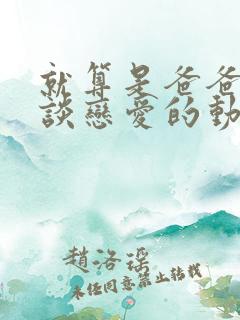 就算是爸爸
談戀愛的動
趙洛瑶
未經同意禁止轉載